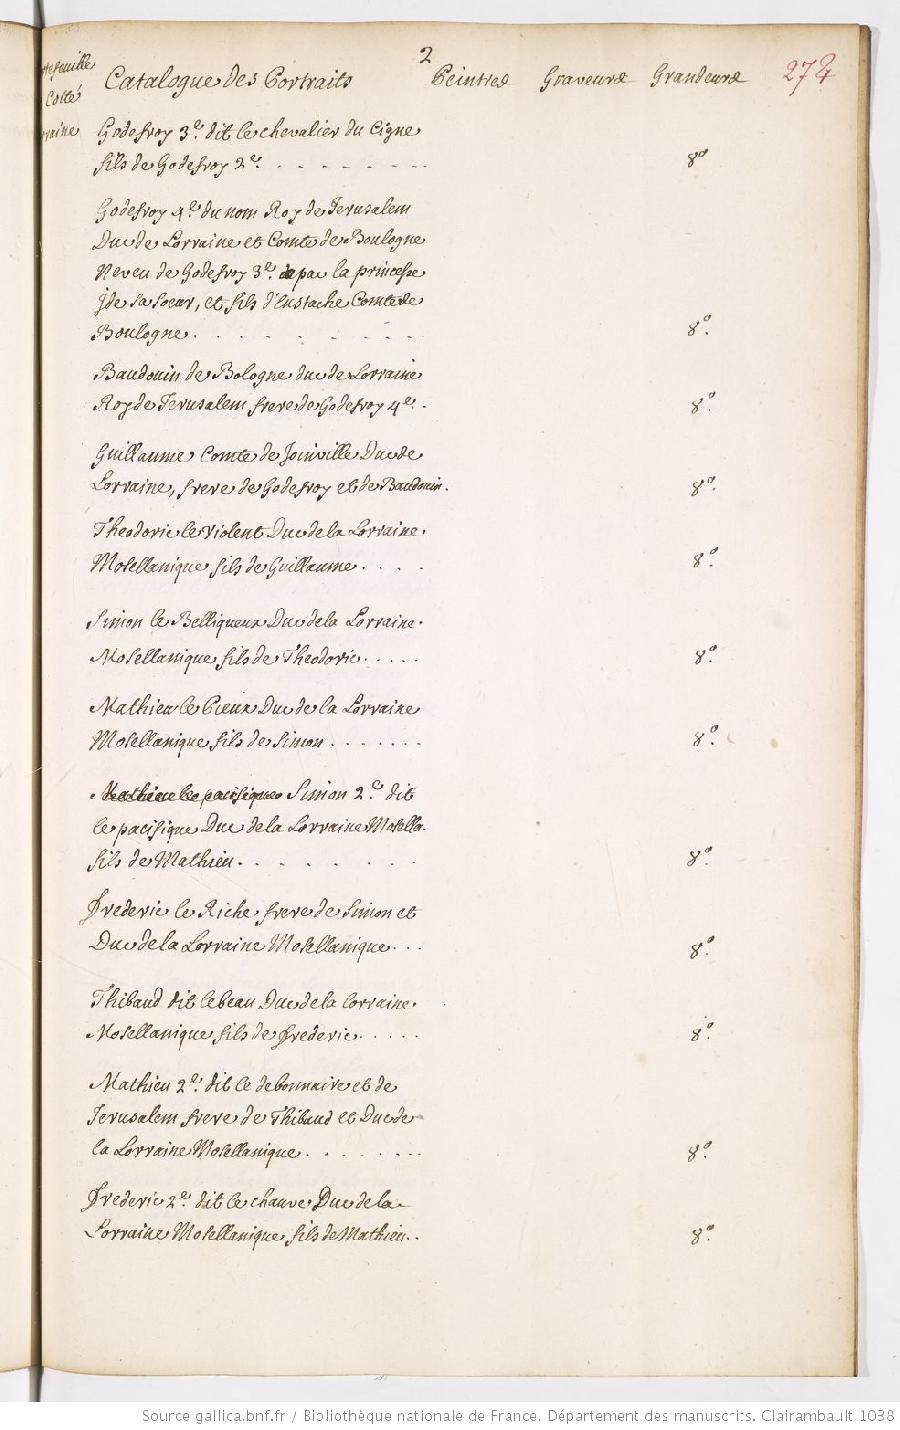 2
tefeuille Catalogue des Portraits Peintres Graveurs Grandeurs
Cotté
raine Godefroy 3e. dit le chevalier du Cigne
fils de Godefroy 2e. . . . . . . . . 8o
Godefroy 4e. du nom Roy de Jerusalem
Duc de Lorraine et Comte de Boulogne
Neveu de Godefroy 3e. par la princesse
Jde sa soeur, et fils d'Eustache Comte de
Boulogne. . . . . . . . . 8o.
Baudouin de Bologne duc de Lorraine
Roy de Jerusalem frere de Godefroy 4e. . 8o.
Guillaume Comte de Joinville Duc de
Lorraine, frere de Godefroy et de Baudouin. 8o.
Theodoric le violent Duc de la Lorraine
Mosellanique fils de Guillaume . . . . 8o.
Simon le Belliqueux Duc de la Lorraine
Mosellanique fils de Theodoric . . . . . 8o.
Mathieu le Pieux Duc de la Lorraine
Mosellanique fils de Simon . . . . . . . 8o.
Mathieu le pacifique Simon 2e. dit
le pacifique Duc de la Lorraine Mosella.
fils de Mathieu . . . . . . . 8o.
Frederic le Riche frere de Simon et
Duc de la Lorraine Mosellanique . . . 8o.
Thibaud dit le beau Duc de la Lorraine
Mosellanique fils de Frederic . . . . . 8o.
Mathieu 2e. dit le debonnaire et de
Jerusalem frere de Thibaud et Duc de
la Lorraine Mosellanique . . . . . . . . 8o.
Frederic 2e. dit le chauve Duc de la
Lorraine Mosellanique fils de Mathieu . . 8o.
Source gallica.bnf.fr / Bibliothèque nationale de France. Département des manuscrits. Clairambault 1038